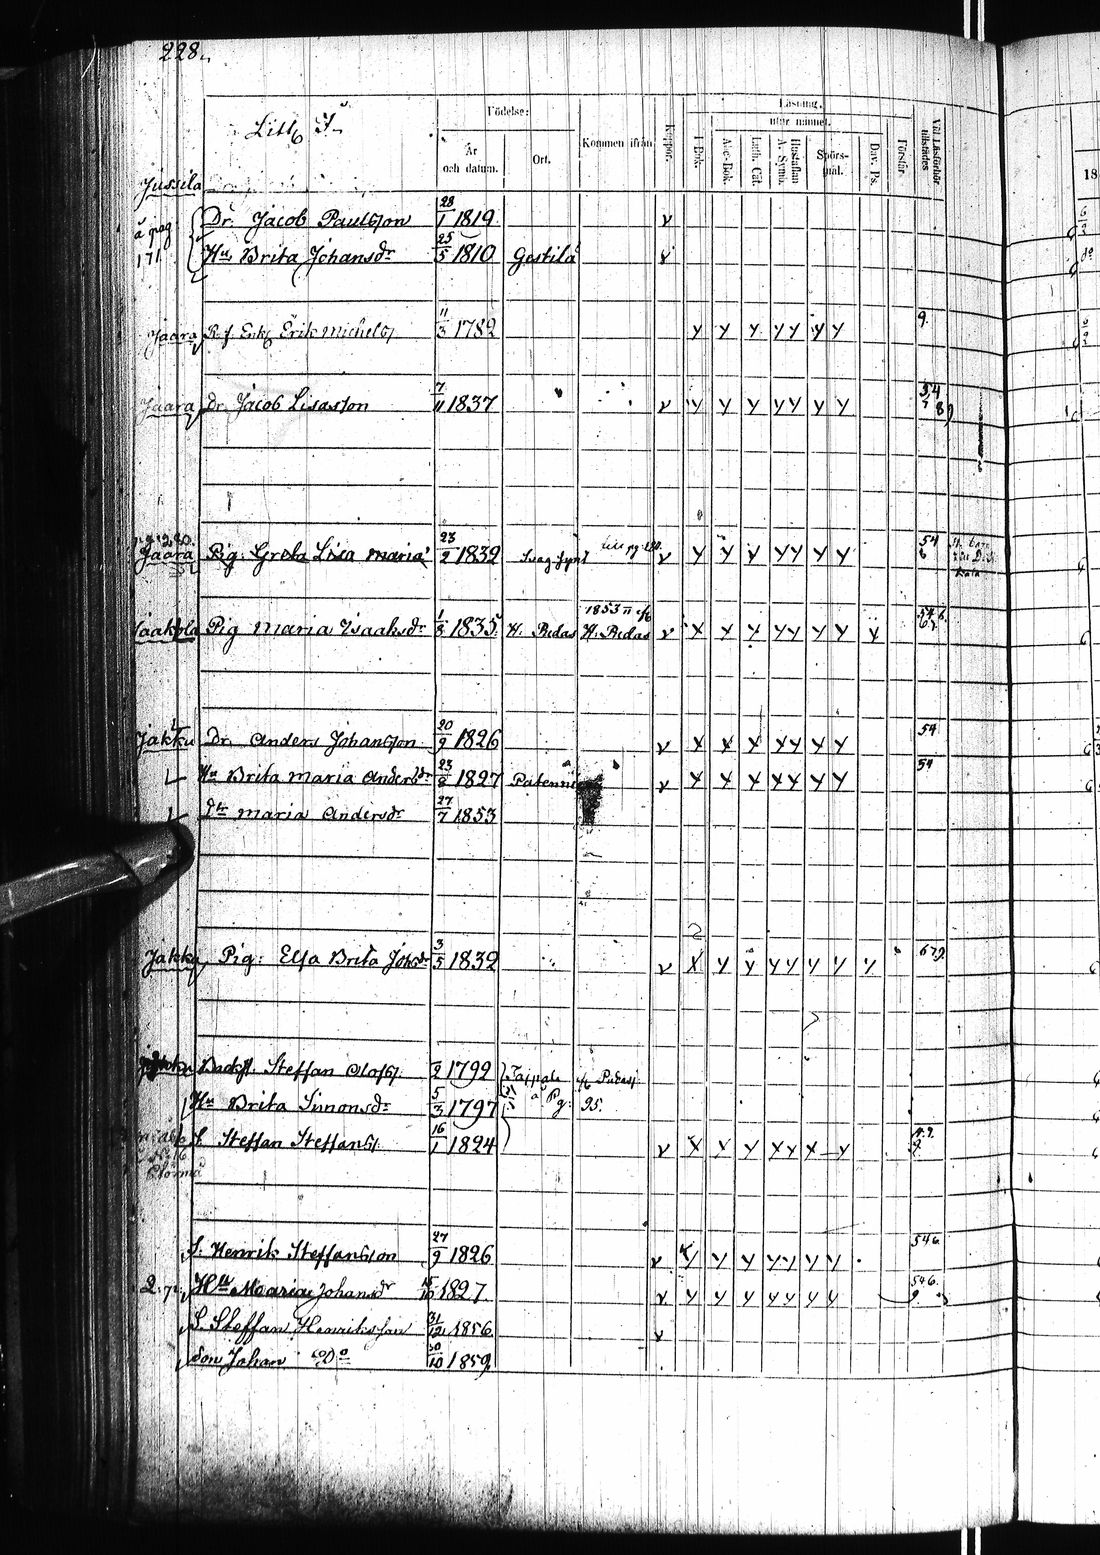 228.
Litt. J.
Födelse:
År och datum.
Ort.
Kommen ifrån
Koppor.
Läsning,
utur minnet.
I Bok.
Abc-Bok.
Luth. Cat.
Hustaflan A. Symb.
Spörsmål.
Dav. Ps.
Förstår.
Vid Läsförhör tillstädes
18
Jussila
å pag 171 Dr. Jacob Paulsson 28/1 1819 v
Hu Brita Johansdr 25/5 1810 Gestilä v
Jaara R. f. Enkl Erik Michelss 11/3 1782 y y y yy y y 9.
Jaara Dr Jacob Lisasson 7/11 1837 v y y y yy y y 54 7 8
Jaara Pig. Greta Lisa Maria 23/2 1832 v y y y yy y y 54
1853 11/6
Jaakola Pig Maria Isaaksdr 1/3 1835 H. Redas H. Redas v x y y yy y y y
Jakku Dr. Anders Johansson 20/9 1826 v x x x xy y y 54
Hu Brita Maria Andersdr 23/8 1827 v x x x xx y y 54
Dtr Maria Andersdr 27/7 1853
Jakku Pig: Elsa Brita Johsdr 3/5 1832 v x y y yy y y y 679
Backst. Steffan Olofss /2 1792
Hu Brita Simonsdr 5/3 1797 å Pg: 95.
S. Steffan Steffanss 16/1 1824 v x x y xy x y
S. Henrik Steffansson 27/9 1826 v y y y yy y y 546
Hu Maria Johansdr 15/10 1827 v y y y yy y y 546 9
S. Steffan Henriksson 31/12 1856 v
Son Johan Do 30/10 1859